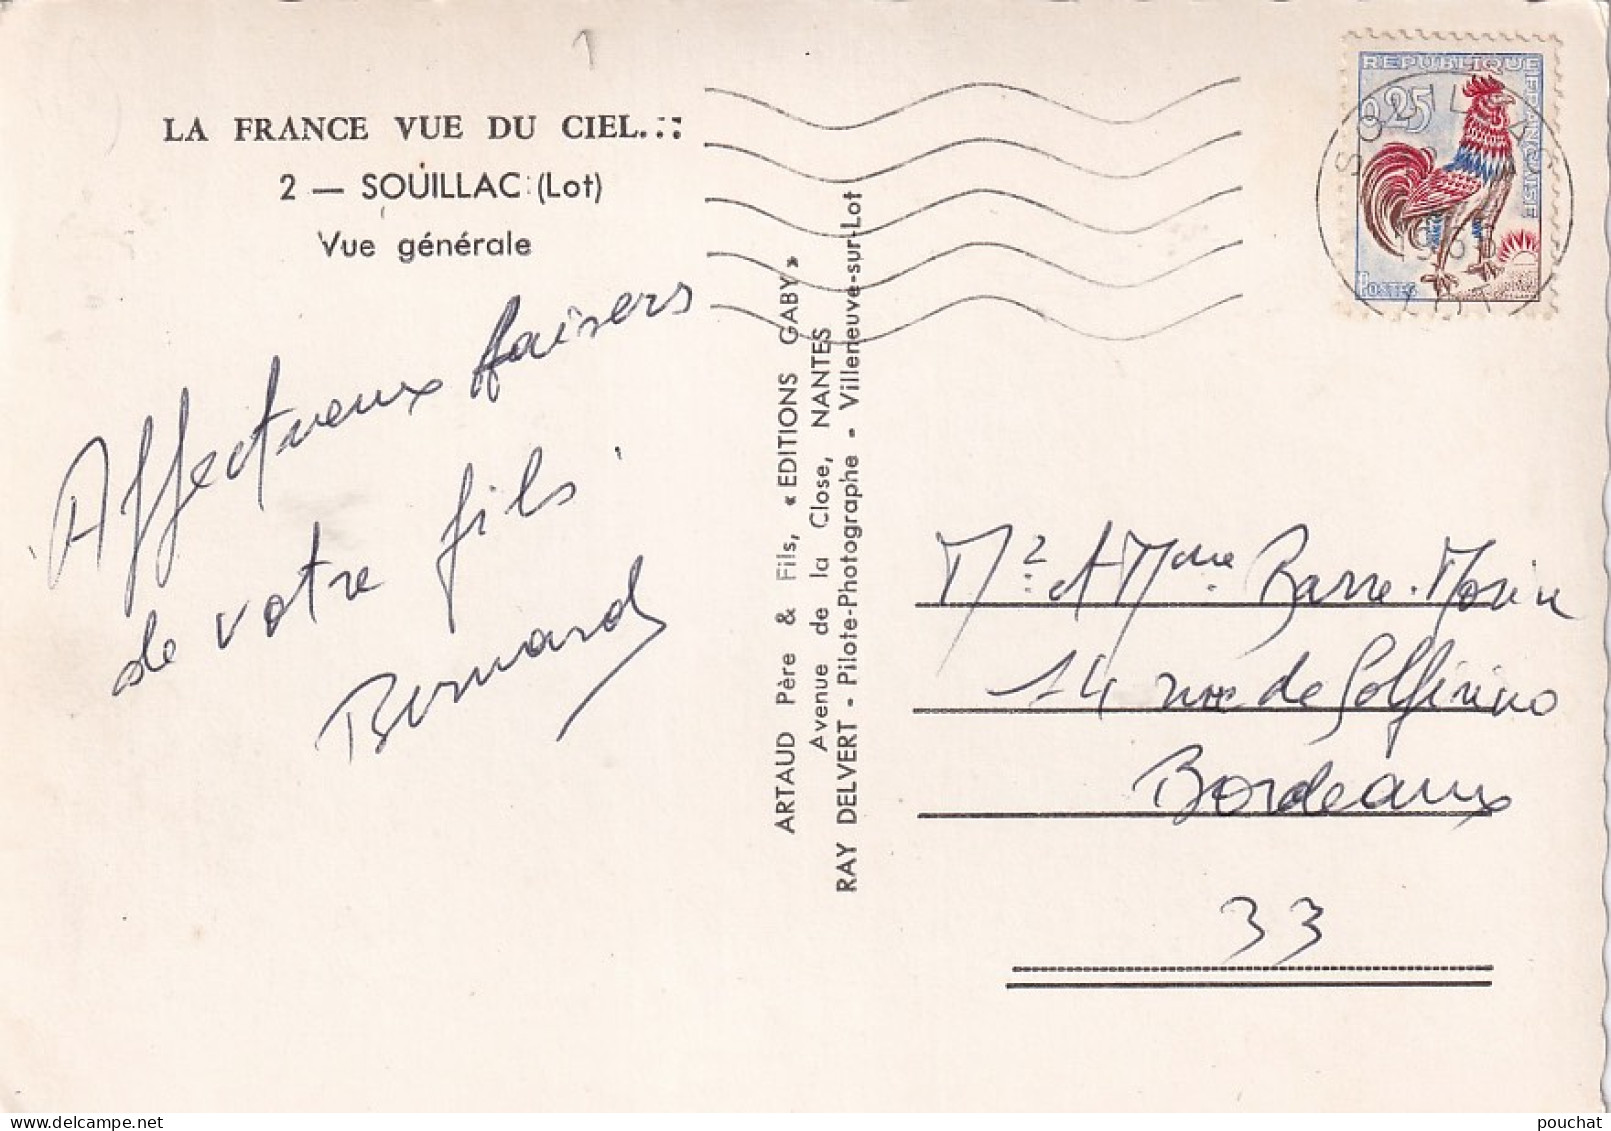 LA FRANCE VUE DU CIEL...
2 — SOUILLAC (Lot)
Vue générale
Affectueux baisers
de votre fils
Bernard
ARTAUD Père & Fils, « EDITIONS GABY »
Avenue de la Close, NANTES
RAY DELVERT - Pilote-Photographe - Villeneuve-sur-Lot
REPUBLIQUE FRANÇAISE
0,25
POSTES
SOUILLAC
LOT
Mr et Mme Barre-Morin
14 rue de Solférino
Bordeaux
33
pouchat